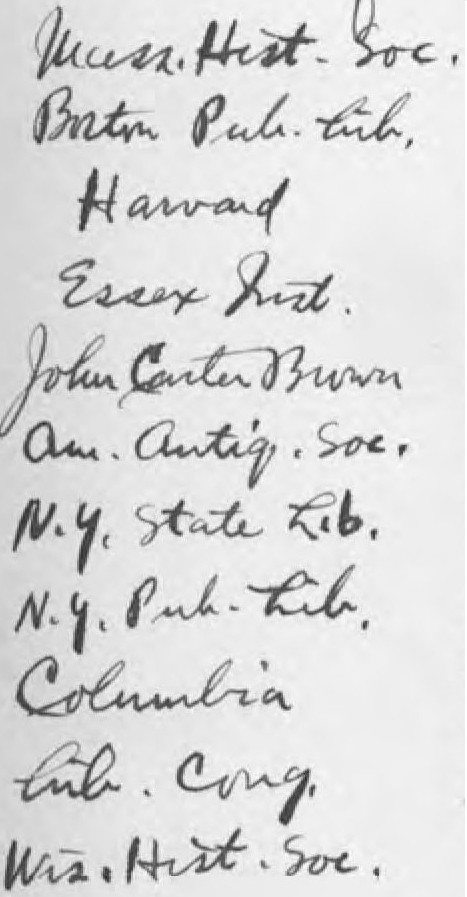 Mass. Hist. Soc.
Boston Pub. Lib.
Harvard
Essex Inst.
John Carter Brown
Am. Antiq. Soc.
N.Y. State Lib.
N.Y. Pub. Lib.
Columbia
Lib. Cong.
Wis. Hist. Soc.